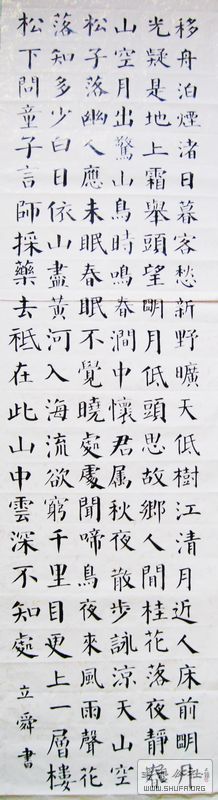 移舟泊煙渚日暮客愁新野曠天低樹江清月近人床前明月
光疑是地上霜舉頭望明月低頭思故鄉人閒桂花落夜靜春
山空月出驚山鳥時鳴春澗中懷君属秋夜散步詠涼天山空
松子落幽人應未眠春眠不覺曉處處聞啼鳥夜來風雨聲花
落知多少白日依山盡黃河入海流欲窮千里目更上一層樓
松下問童子言師採藥去祗在此山中雲深不知處
立舜書
WWW.SHUFA.ORG